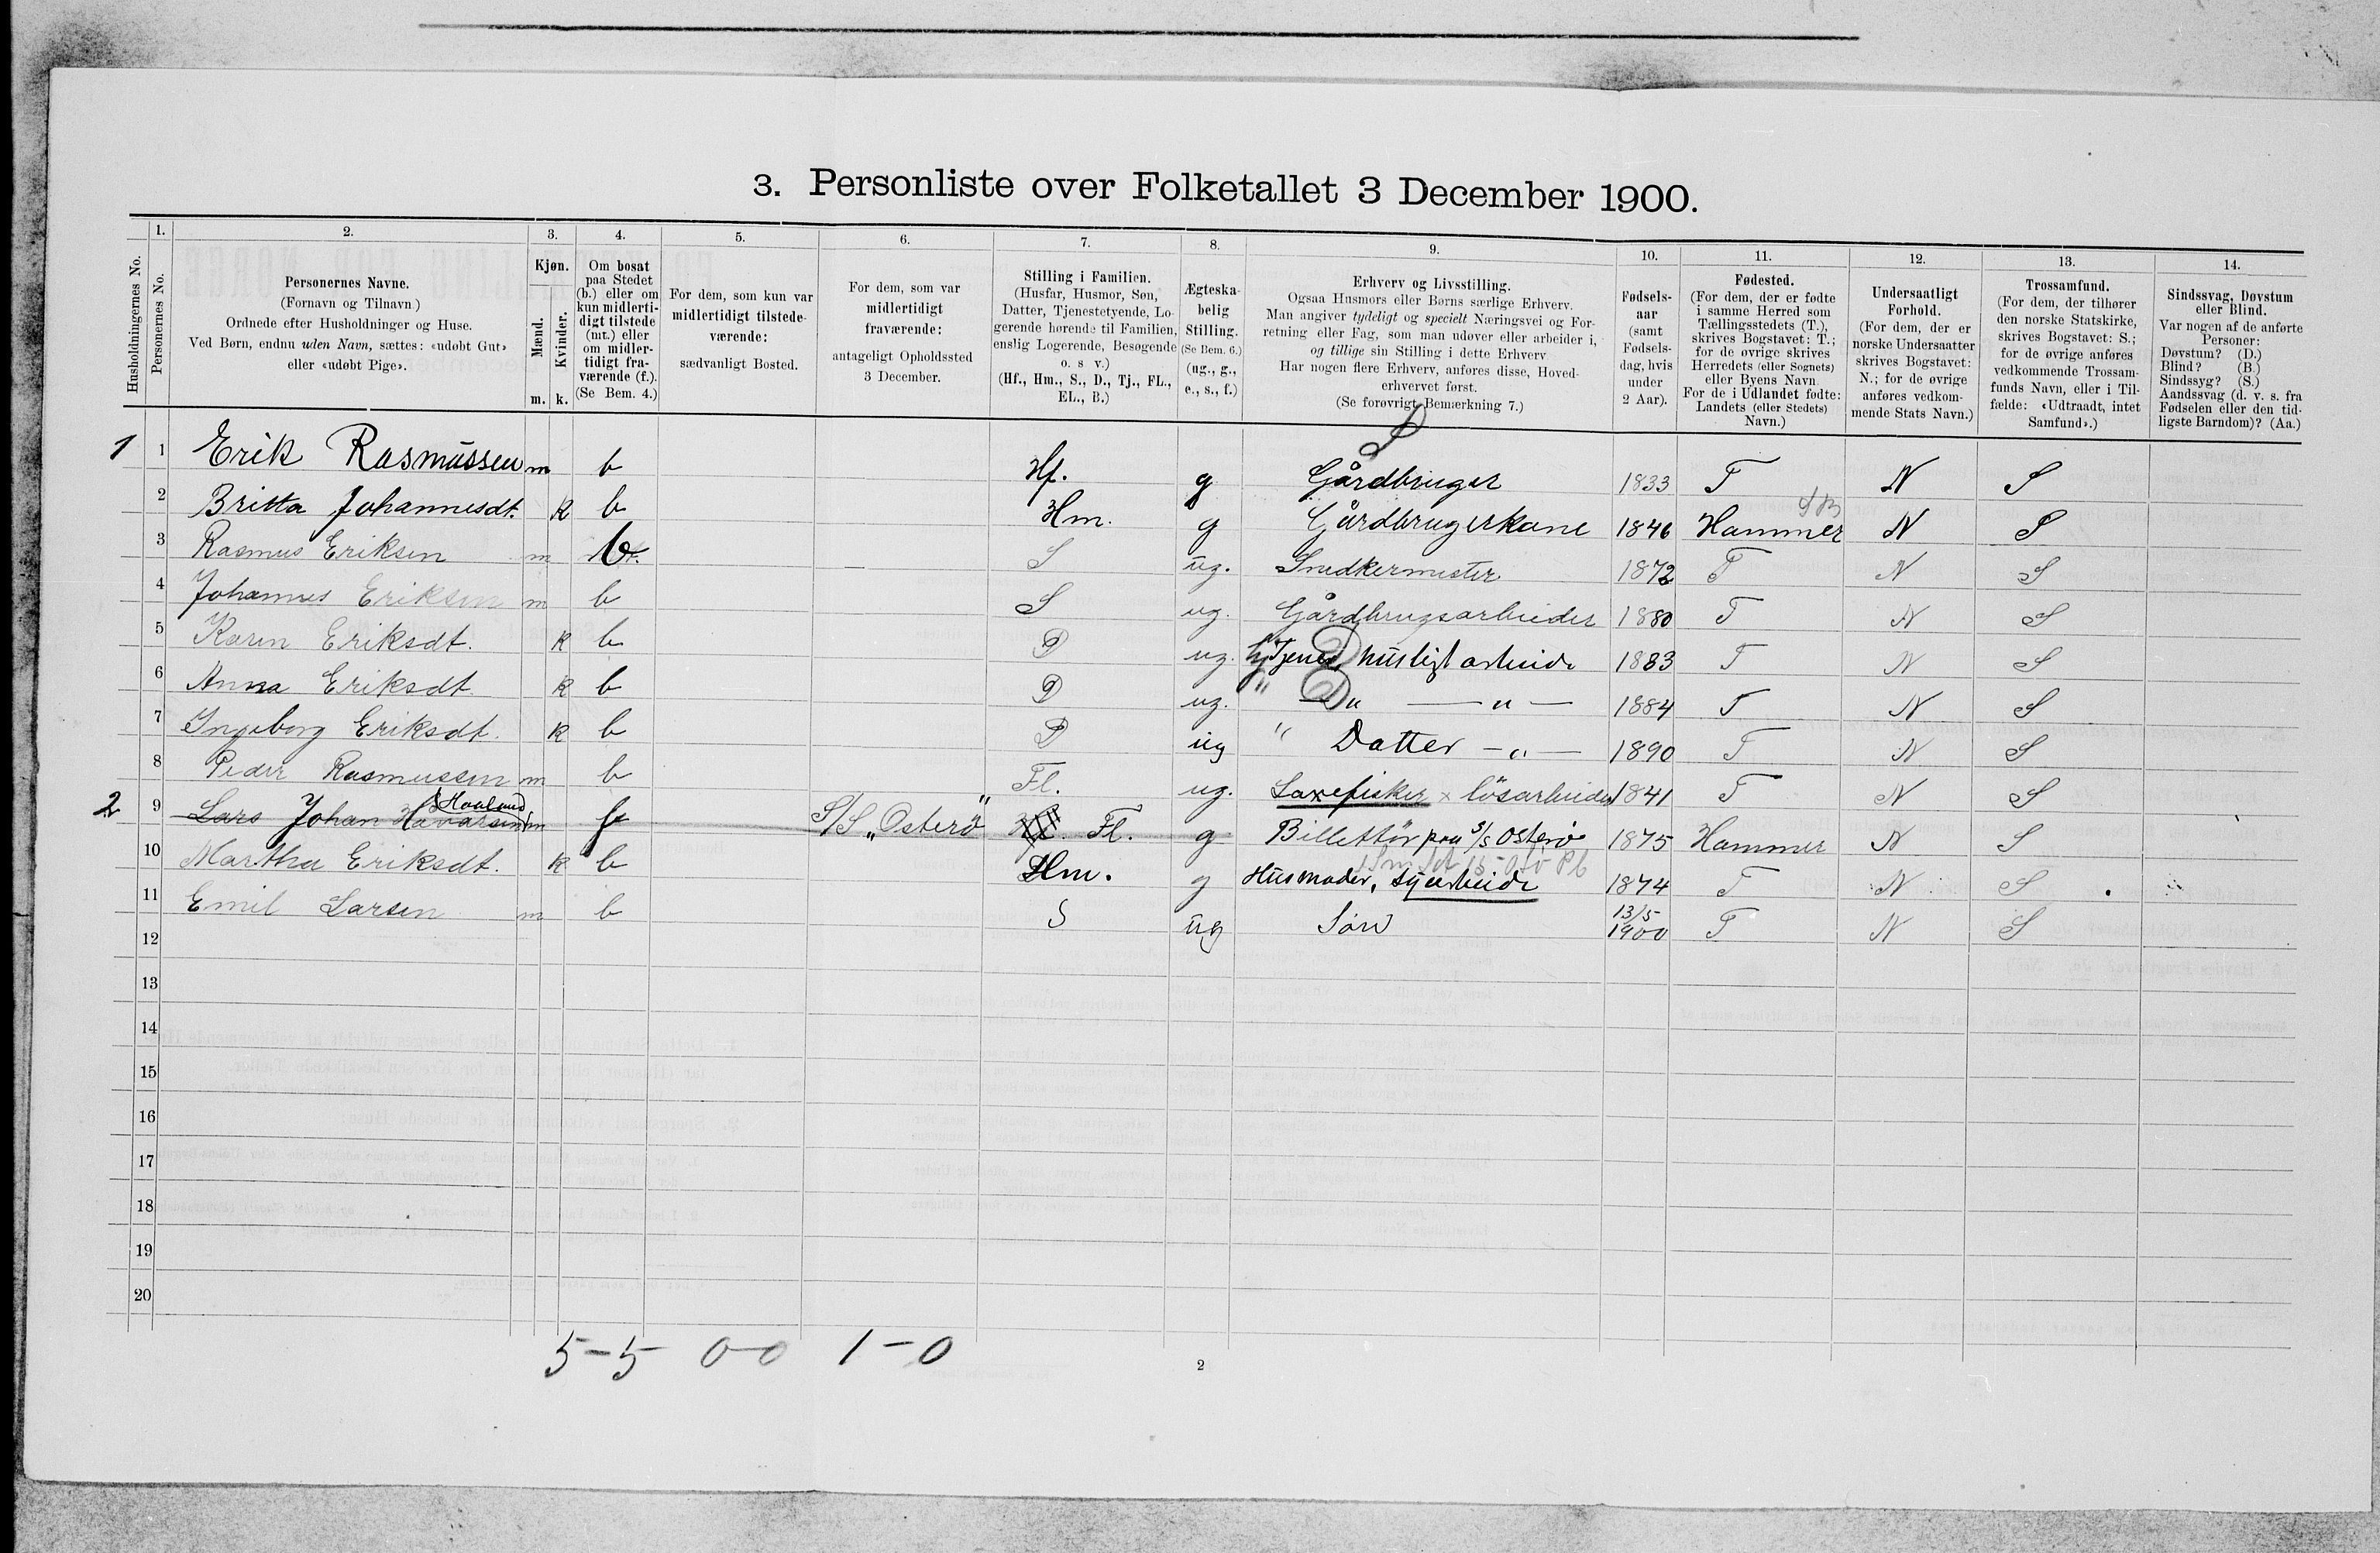 3. Personliste over Folketallet 3 December 1900.
1. 2. 3. 4. 5. 6. 7. 8. 9. 10. 11. 12. 13. 14.
Husholdningernes No.
Personernes No.
Personernes Navne.
(Fornavn og Tilnavn.)
Ordnede efter Husholdninger og Huse.
Ved Børn, endnu uden Navn, sættes: «udøbt Gut»
eller «udøbt Pige».
Kjøn.
Mænd.
Kvinder.
m. k.
Om bosat
paa Stedet
(b.) eller om
kun midlerti-
digt tilstede
(mt.) eller
om midler-
tidigt fra-
værende (f.).
(Se Bem. 4.)
For dem, som kun var
midlertidigt tilstede-
værende:
sædvanligt Bosted.
For dem, som var
midlertidigt
fraværende:
antageligt Opholdssted
3 December.
Stilling i Familien.
(Husfar, Husmor, Søn,
Datter, Tjenestetyende, Lo-
gerende hørende til Familien,
enslig Logerende, Besøgende
o. s v.)
(Hf., Hm., S., D., Tj., FL.,
EL., B.)
Ægteska-
belig
Stilling.
(Se Bem. 6.)
(ug., g.,
e., s., f.)
Erhverv og Livsstilling.
Ogsaa Husmors eller Børns særlige Erhverv.
Man angiver tydeligt og specielt Næringsvei og For-
retning eller Fag, som man udøver eller arbeider i,
og tillige sin Stilling i dette Erhverv
Har nogen flere Erhverv, anføres disse, Hoved-
erhvervet først.
(Se forøvrigt Bemærkning 7.)
Fødsels-
aar
(samt
Fødsels-
dag, hvis
under
2 Aar).
Fødested.
(For dem, der er fødte
i samme Herred som
Tællingsstedets (T.),
skrives Bogstavet: T.;
for de øvrige skrives
Herredets (eller Sognets)
eller Byens Navn
For de i Udlandet fødte:
Landets (eller Stedets)
Navn.)
Undersaatligt
Forhold.
(For dem, der er
norske Undersaatter
skrives Bogstavet:
N.; for de øvrige
anføres vedkom-
mende Stats Navn.)
Trossamfund.
(For dem, der tilhører
den norske Statskirke,
skrives Bogstavet: S.;
for de øvrige anføres
vedkommende Trossam-
funds Navn, eller i Til-
fælde: «Udtraadt, intet
Samfund».)
Sindssvag, Døvstum
eller Blind.
Var nogen af de anførte
Personer:
Døvstum? (D.)
Blind? (B.)
Sindssyg? (S.)
Aandssvag (d. v. s. fra
Fødselen eller den tid-
ligste Barndom)? (Aa.)
S
1 1 Erik Rasmussen m b Hf. g Gårdbruger 1833 T N S
2 Britta Johannesdt. k b Hm. g Gårdbrugerkone 1846 Hammer N S
3 Rasmus Eriksen m b S ug. Snedkermester 1872 T N S
4 Johannes Eriksen m b S ug. Gårdbrugsarbeider 1880 T N S
5 Karen Eriksdt. k b D ug. Tjener, husligt arbeide 1883 T N S
6 Anna Eriksdt. k b D ug. " — " — " — 1884 T N S
7 Ingeborg Eriksdt. k b D ug " Datter — " — 1890 T N S
8 Peder Rasmussen m b Fl. ug. Laxefisker x løsarbeider 1841 T N S
Haaland
2 9 Lars Johan Havarsen m f S/S „Osterö" Fl. g Billettör paa S/S Osterö 1875 Hammer N S
10 Martha Eriksdt. k b Hm. g Husmoder, syarbeide 1874 T N S
11 Emil Larsen m b S ug Søn 13/5 1900 T N S
12
13
14
15
16
17
18
19
20
5-5 0-0 1-0
2